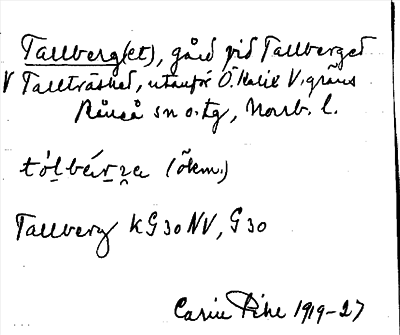 Tallberg(et), gård vid Tallberget
V Tallträsket, utanför Ö. Kalix V. gräns
Råneå sn o. tg, Norrb. l.
tólbárʒa (ökm.)
Tallberg KG30NV, G30
Carin Pihl 1919-27